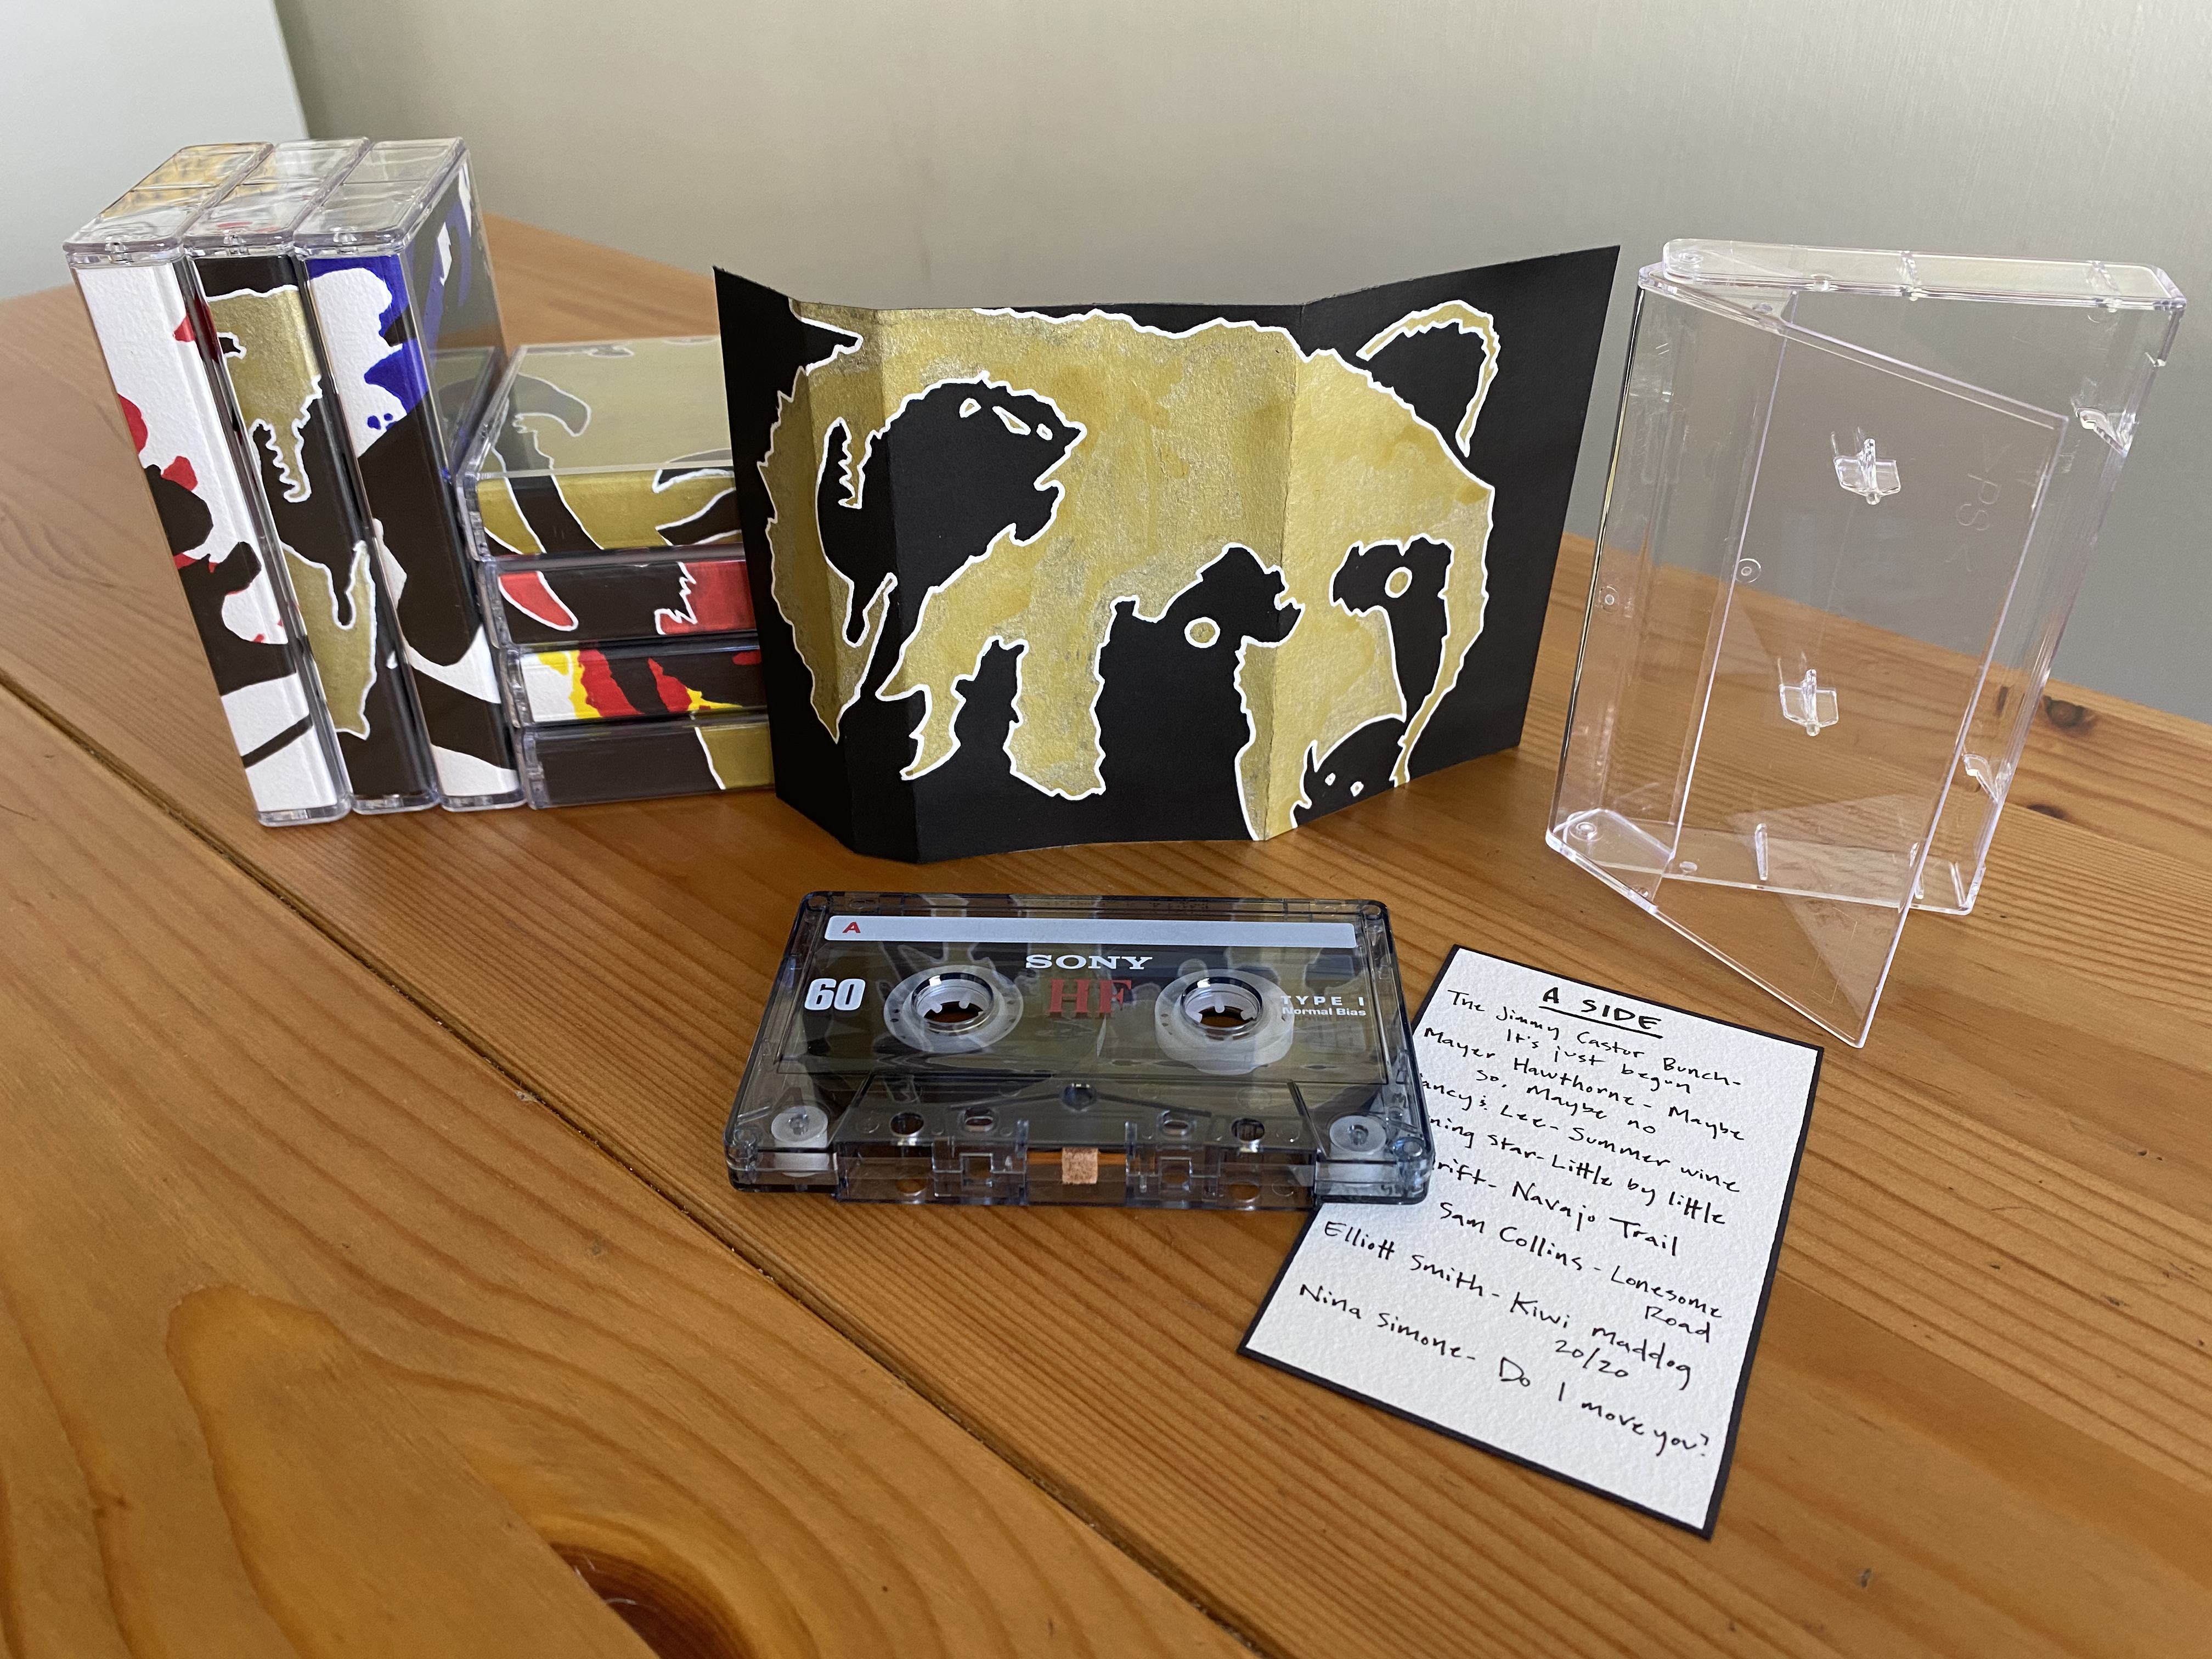 A
SONY
60
HF
TYPE I
Normal Bias
A SIDE
The Jimmy Castor Bunch-
It's just begun
Mayer Hawthorne - Maybe
So, Maybe no
Lee- Summer wine
star- Little by little
Navajo Trail
Sam Collins - Lonesome
Road
Elliott Smith - Kiwi Maddog
20/20
Nina Simone- Do I move you?